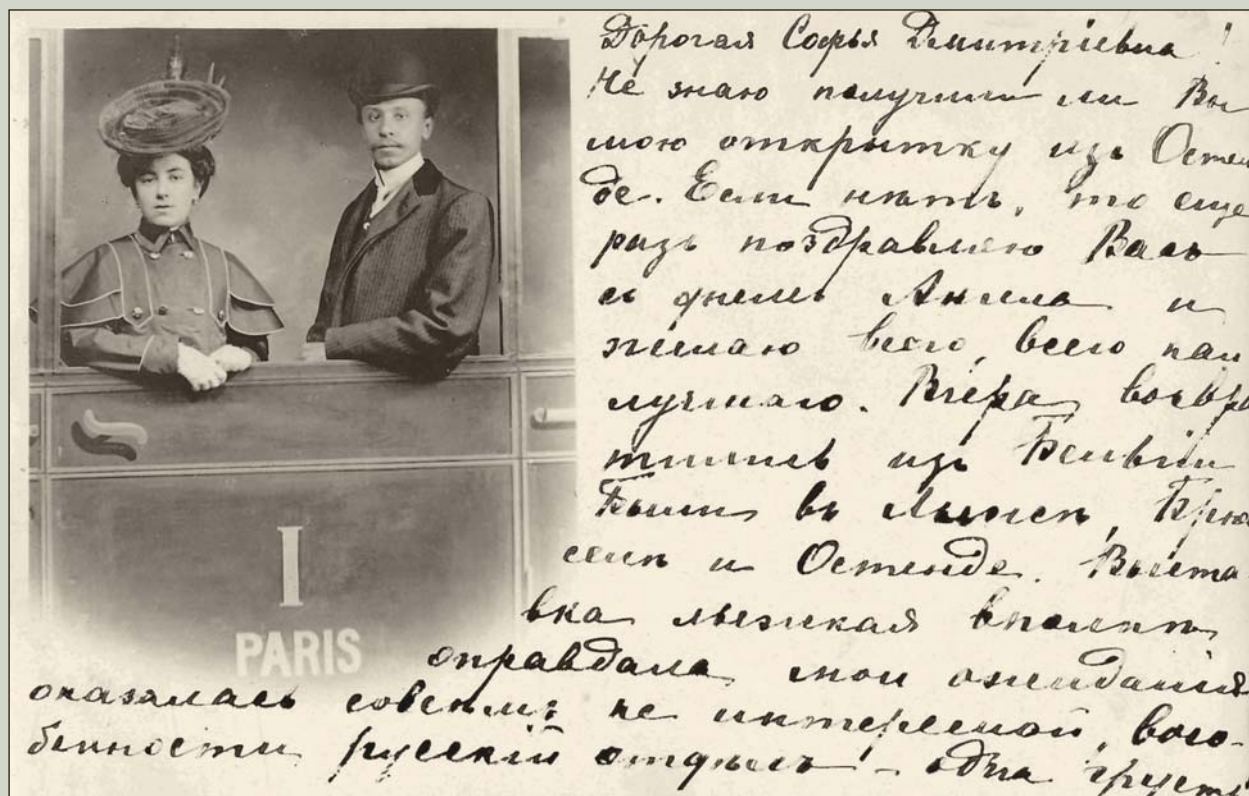 Дорогая Софья Дмитріевна!
Не знаю получили ли Вы
мою открытку изъ Остен
де. Если нѣтъ, то еще
разъ поздравляю Васъ
съ днемъ Ангела и
желаю всего, всего наи
лучшаго. Вчера возвра
тились изъ Бельгіи
Были въ Льежѣ, Брюс
селѣ и Остенде. Выста
вка льежская вполнѣ
оправдала мои ожиданія
оказалась совсѣмъ не интересной, восо-
бенности русскій отдѣлъ – одна грусть
I
PARIS